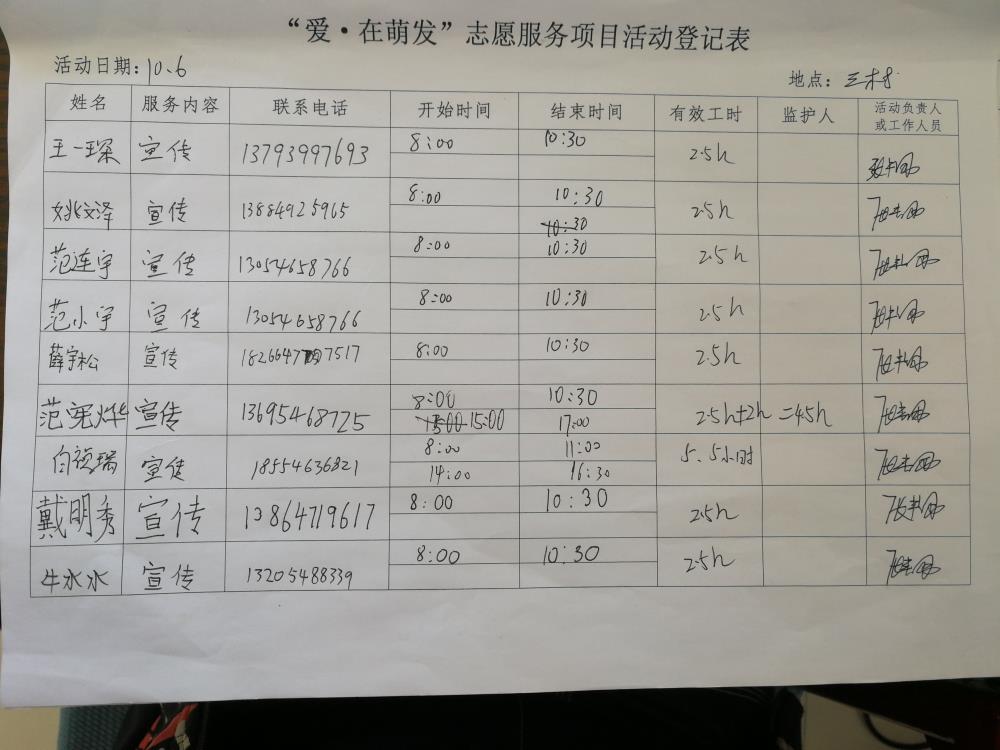 “爱·在萌发”志愿服务项目活动登记表
活动日期：10、6 地点：三木
姓名 服务内容 联系电话 开始时间 结束时间 有效工时 监护人 活动负责人或工作人员
王一琛 宣传 13793997693 8:00 10:30 2.5h
姚文泽 宣传 13884925965 8:00 10:30 2.5h
10:30
范连宇 宣传 13054658766 8:00 10:30 2.5h
范小宇 宣传 13054658766 8:00 10:30 2.5h
薛宇松 宣传 18266477517 8:00 10:30 2.5h
范宪烨 宣传 13695468725 8:00 10:30 2.5h+2h=45h
15:00 17:00
白稼瑞 宣传 18554636821 8:00 11:00 5.5小时
14:00 16:30
戴明秀 宣传 13864719617 8:00 10:30 2.5h
牛水水 宣传 13205488339 8:00 10:30 2.5h